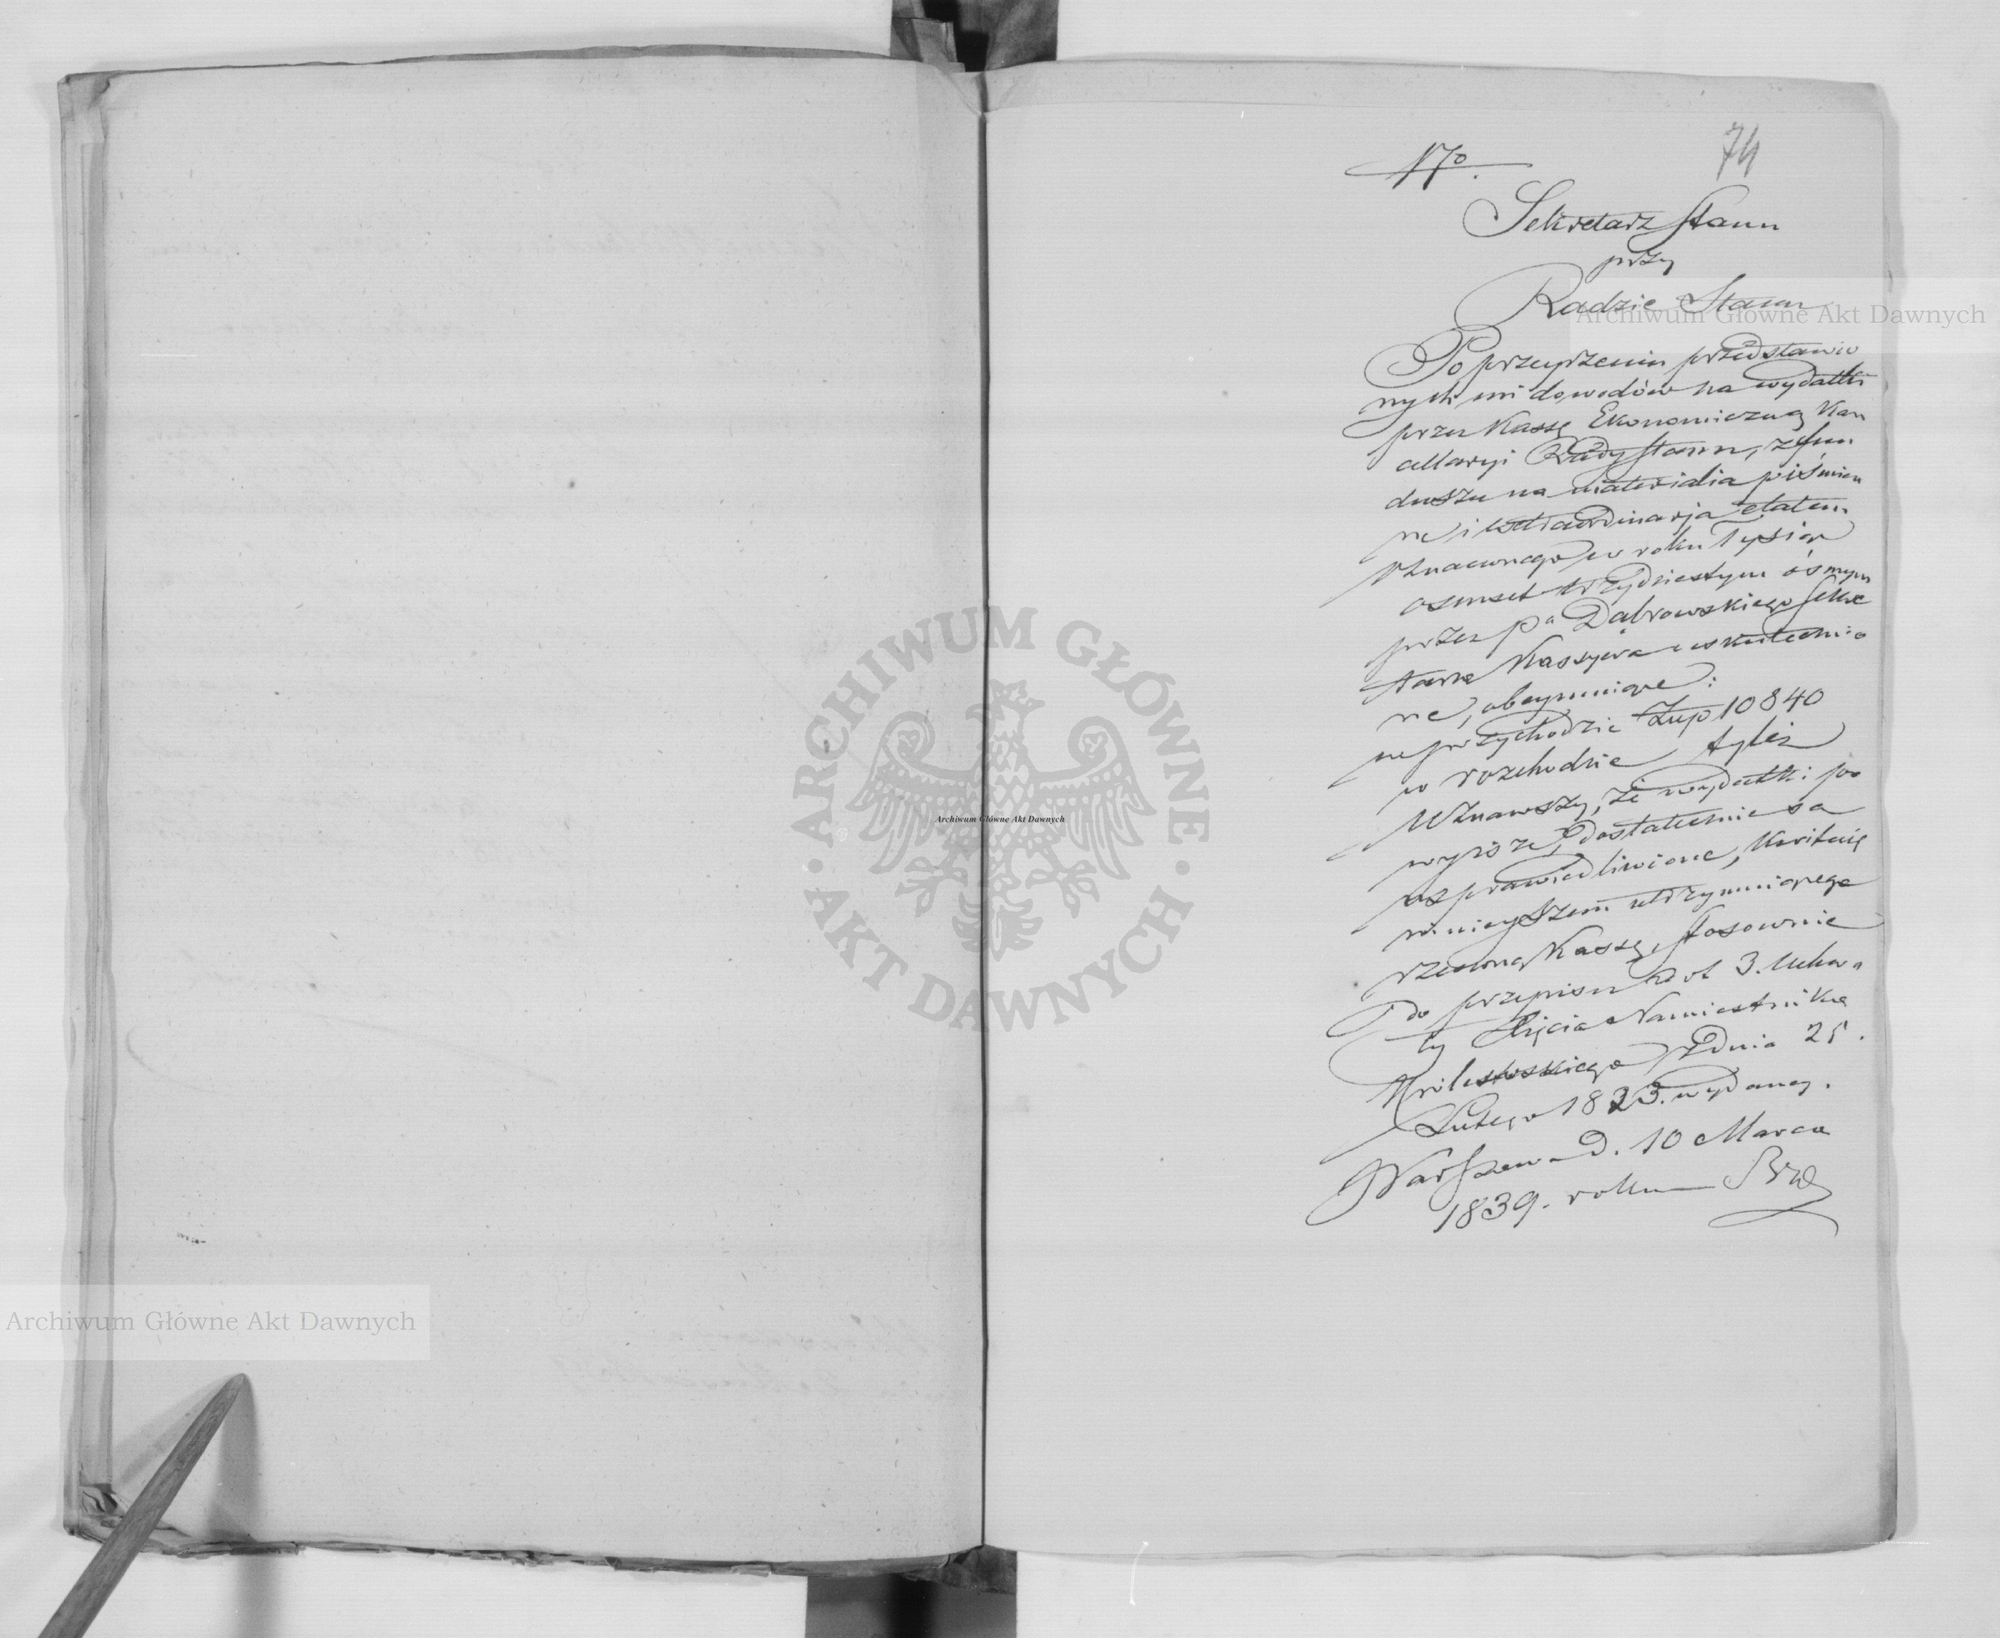 74
No.
Sekretarz Stanu
przy
Radzie Stanu
Po przeyrzeniu przedstawio
nych mi dowodów na wydatki
przez Kassę Ekonomiczną Kan
cellaryi Rady Stanu, z fun
duszu na materialia piśmien
ne i extraordinarja etatem
oznaczonego w roku tysiąc
osmset trzydziestym ósmym
przez Pa Dąbrowskiego Sekre
tarza Kassyera uskutecznio
ne, obeymuiące:
w przychodzie Złp 10840
w rozchodzie tyleż
Uznawszy, że wydatki po
wyższe, dostatecznie są
usprawiedliwione, kwituię
ninieyszem utrzymuiącego
rzeczoną Kassę, stosownie
do przepisu Art 3. Uchwa
ły Xięcia Namiestnika
Królewskiego z dnia 25.
Lutego 1823. wydaney.
Warszawa d. 10 Marca
1839. roku
Archiwum Główne Akt Dawnych
Archiwum Główne Akt Dawnych
Archiwum Główne Akt Dawnych
ARCHIWUM GŁÓWNE
AKT DAWNYCH